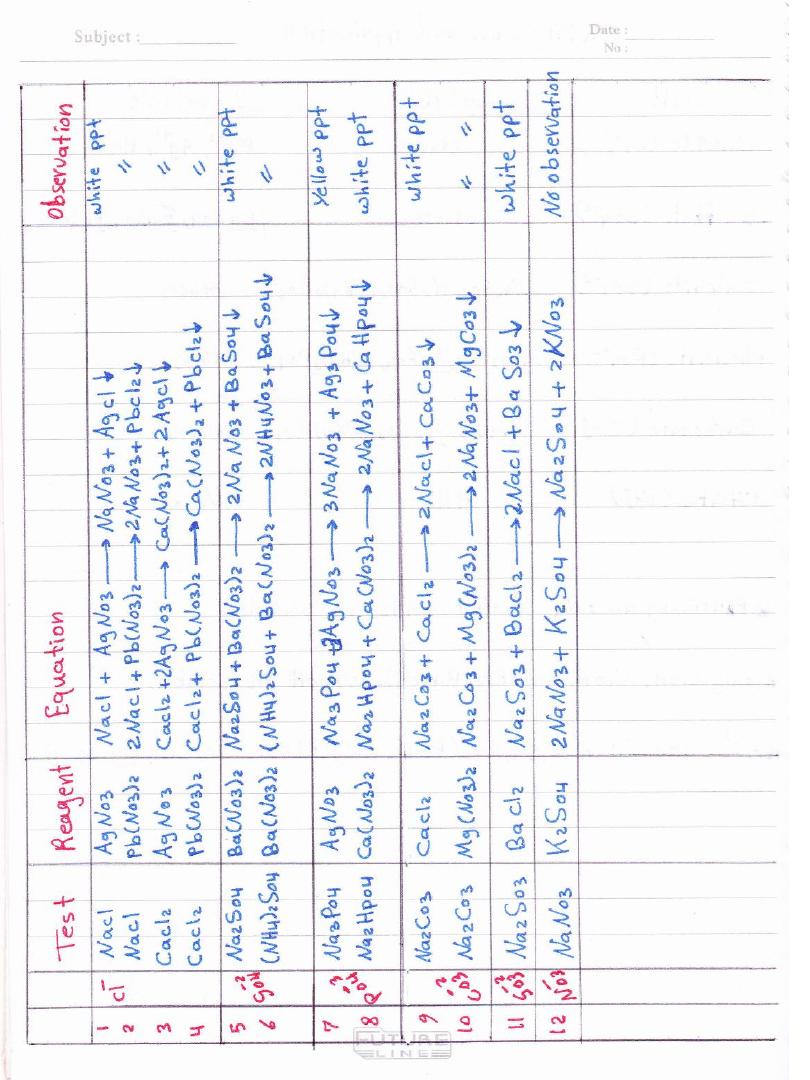 Subject :
Date :
No :
Test Reagent Equation Observation
1 Cl⁻ Nacl AgNo3 Nacl + AgNo3 → NaNo3 + Agcl↓ white ppt
2 Nacl Pb(No3)2 2Nacl + Pb(No3)2 → 2NaNo3 + Pbcl2↓ "
3 Cacl2 AgNo3 Cacl2 + 2AgNo3 → Ca(No3)2 + 2Agcl↓ "
4 Cacl2 Pb(No3)2 Cacl2 + Pb(No3)2 → Ca(No3)2 + Pbcl2↓ "
5 So4⁻² Na2So4 Ba(No3)2 Na2So4 + Ba(No3)2 → 2NaNo3 + BaSo4↓ white ppt
6 (NH4)2So4 Ba(No3)2 (NH4)2So4 + Ba(No3)2 → 2NH4No3 + BaSo4↓ "
7 Po4⁻³ Na3Po4 AgNo3 Na3Po4 + 3AgNo3 → 3NaNo3 + Ag3Po4↓ Yellow ppt
8 Na2Hpo4 Ca(No3)2 Na2Hpo4 + Ca(No3)2 → 2NaNo3 + CaHpo4↓ white ppt
9 Co3⁻² Na2Co3 Cacl2 Na2Co3 + Cacl2 → 2Nacl + CaCo3↓ white ppt
10 Na2Co3 Mg(No3)2 Na2Co3 + Mg(No3)2 → 2NaNo3 + MgCo3↓ " "
11 So3⁻² Na2So3 Bacl2 Na2So3 + Bacl2 → 2Nacl + BaSo3↓ white ppt
12 No3⁻ NaNo3 K2So4 2NaNo3 + K2So4 → Na2So4 + 2KNo3 No observation
FUTURE
LINE